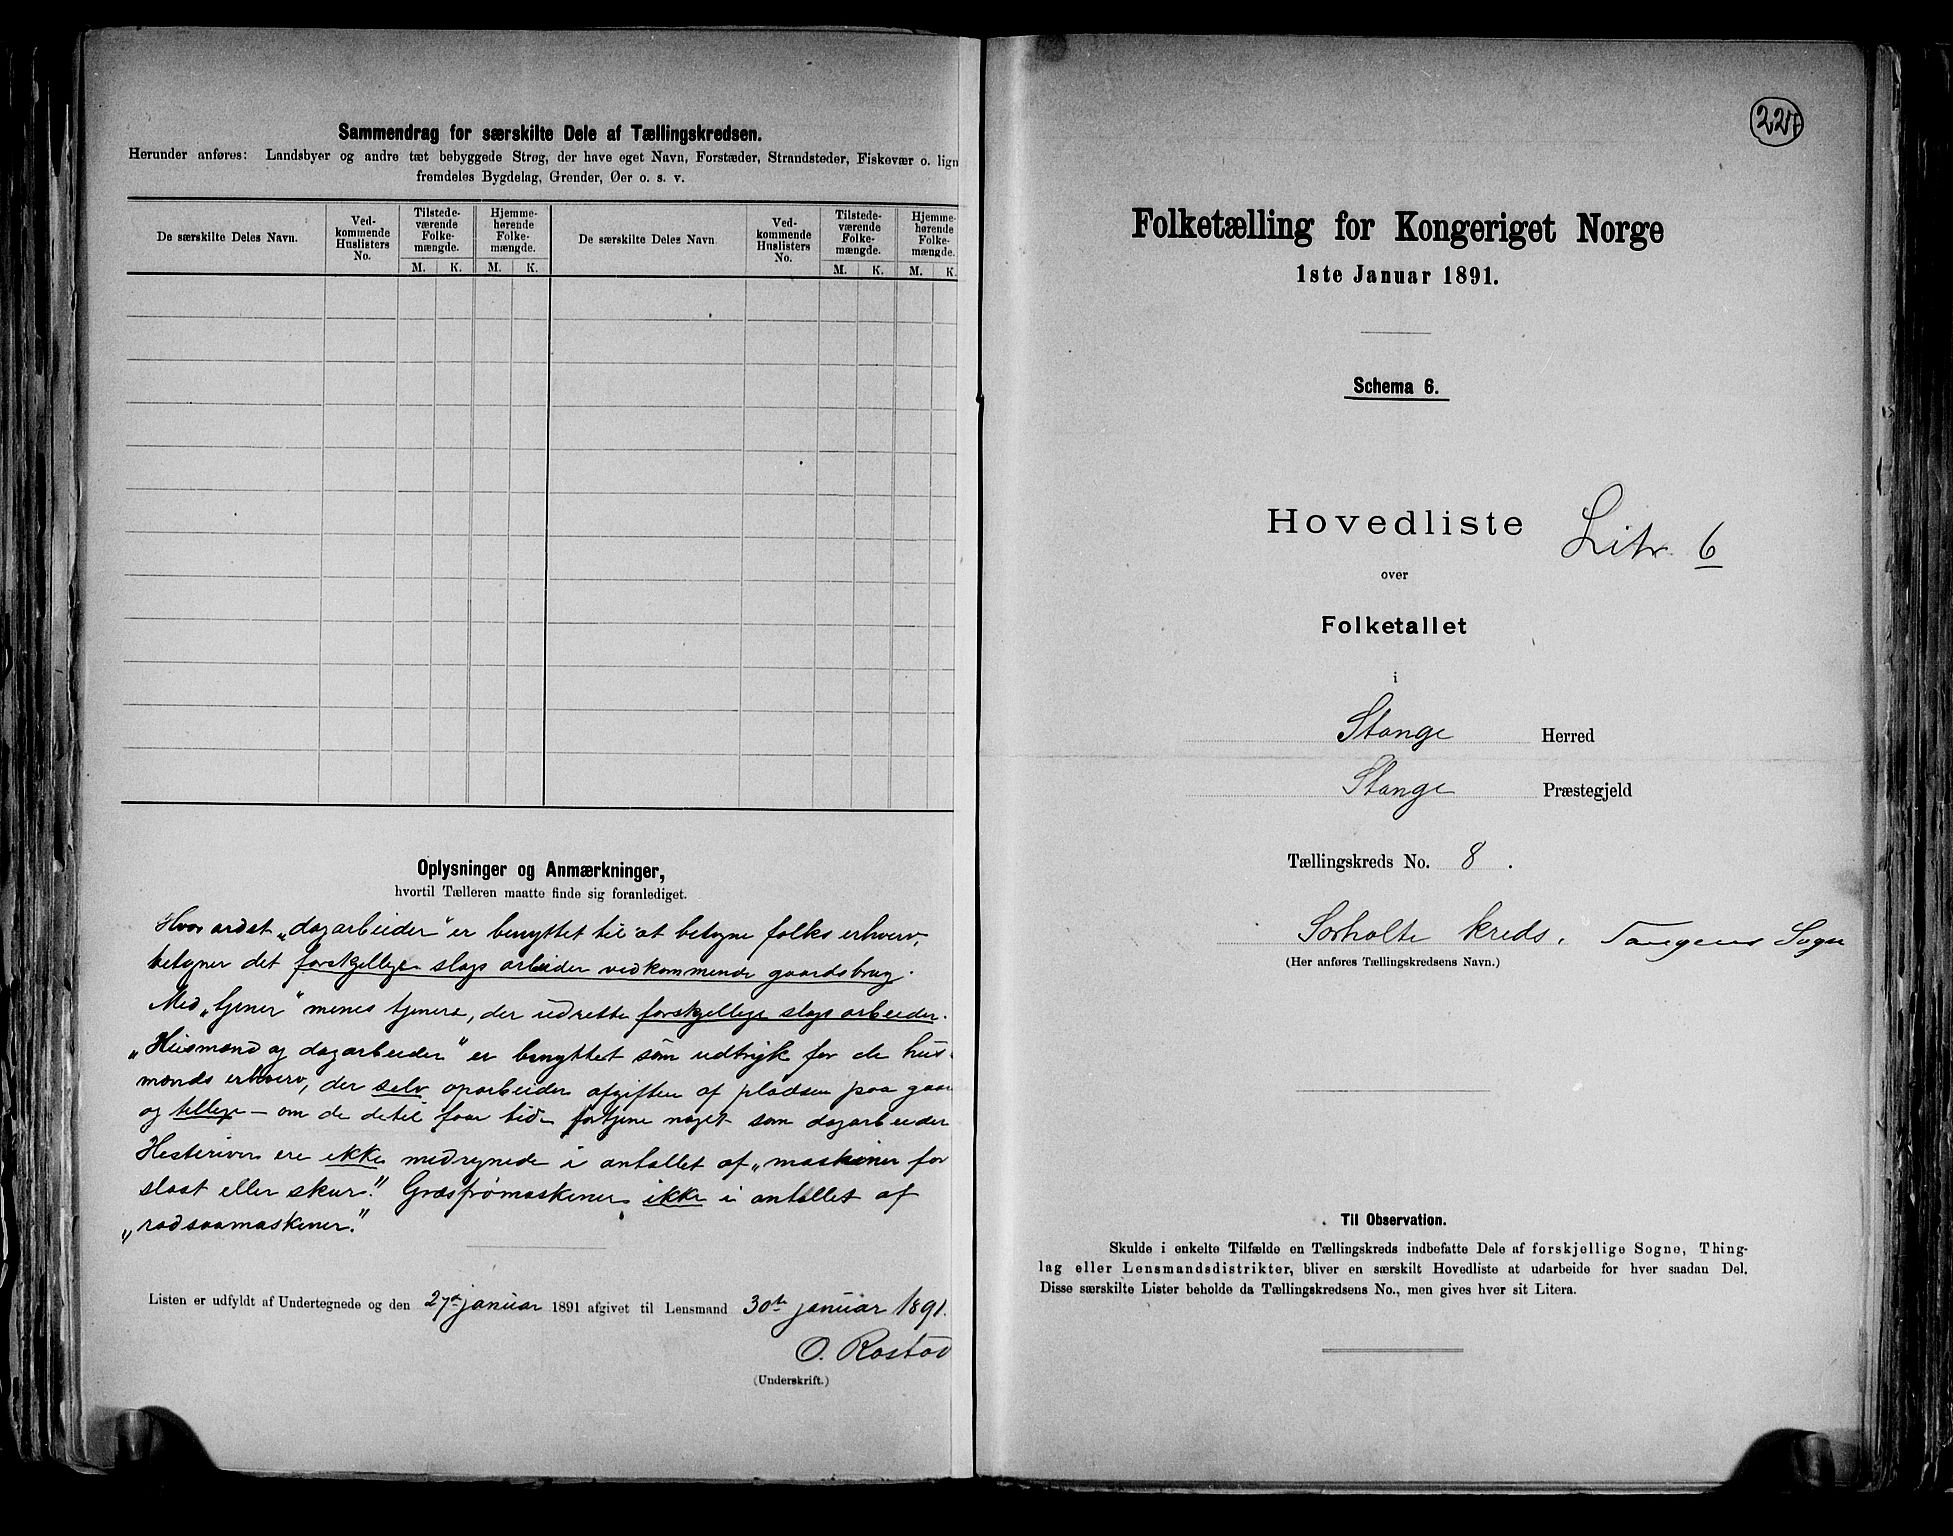 Sammendrag for særskilte Dele af Tællingskredsen.
Herunder anføres: Landsbyer og andre tæt bebyggede Strøg, der have eget Navn, Forstæder, Strandsteder, Fiskevær o. lign
fremdeles Bygdelag, Grender, Øer o. s. v.
De særskilte Deles Navn. Ved-kommende Huslisters No. Tilstede-værende Folke-mængde. Hjemme-hørende Folke-mængde. De særskilte Deles Navn Ved-kommende Huslisters No. Tilstede-værende Folke-mængde. Hjemme-hørende Folke-mængde.
M. K. M. K. M. K. M. K.
Oplysninger og Anmærkninger,
hvortil Tælleren maatte finde sig foranlediget.
Hvor ordet „dagarbeider" er benyttet til at betegne folks erhverv,
betegner det forskjellige slags arbeider vedkommende gaardsbrug.
Med „tjener" menes tjenere, der udrette forskjellige slags arbeider.
„Husmand og dagarbeider" er benyttet som udtryk for de hus-
mænds erhverv, der selv oparbeider afgiften af pladsen paa gaar
og tillige – om de dertil faar tid – fortjene noget som dagarbeider
Hesteriver ere ikke medregnede i antallet af „maskiner for
slaat eller skur." Græsfrømaskiner ikke i antallet af
„radsaamaskiner."
Listen er udfyldt af Undertegnede og den 27de januar 1891 afgivet til Lensmand 30te januar 1891.
O. Rostad
(Underskrift.)
227
Folketælling for Kongeriget Norge
1ste Januar 1891.
Schema 6.
Hovedliste Litr. 6
over
Folketallet
i
Stange Herred
Stange Præstegjeld
Tællingskreds No. 8.
Sørholte kreds. Tangens Sogn
(Her anføres Tællingskredsens Navn.)
Til Observation.
Skulde i enkelte Tilfælde en Tællingskreds indbefatte Dele af forskjellige Sogne, Thing-
lag eller Lensmandsdistrikter, bliver en særskilt Hovedliste at udarbeide for hver saadan Del.
Disse særskilte Lister beholde da Tællingskredsens No., men gives hver sit Litera.